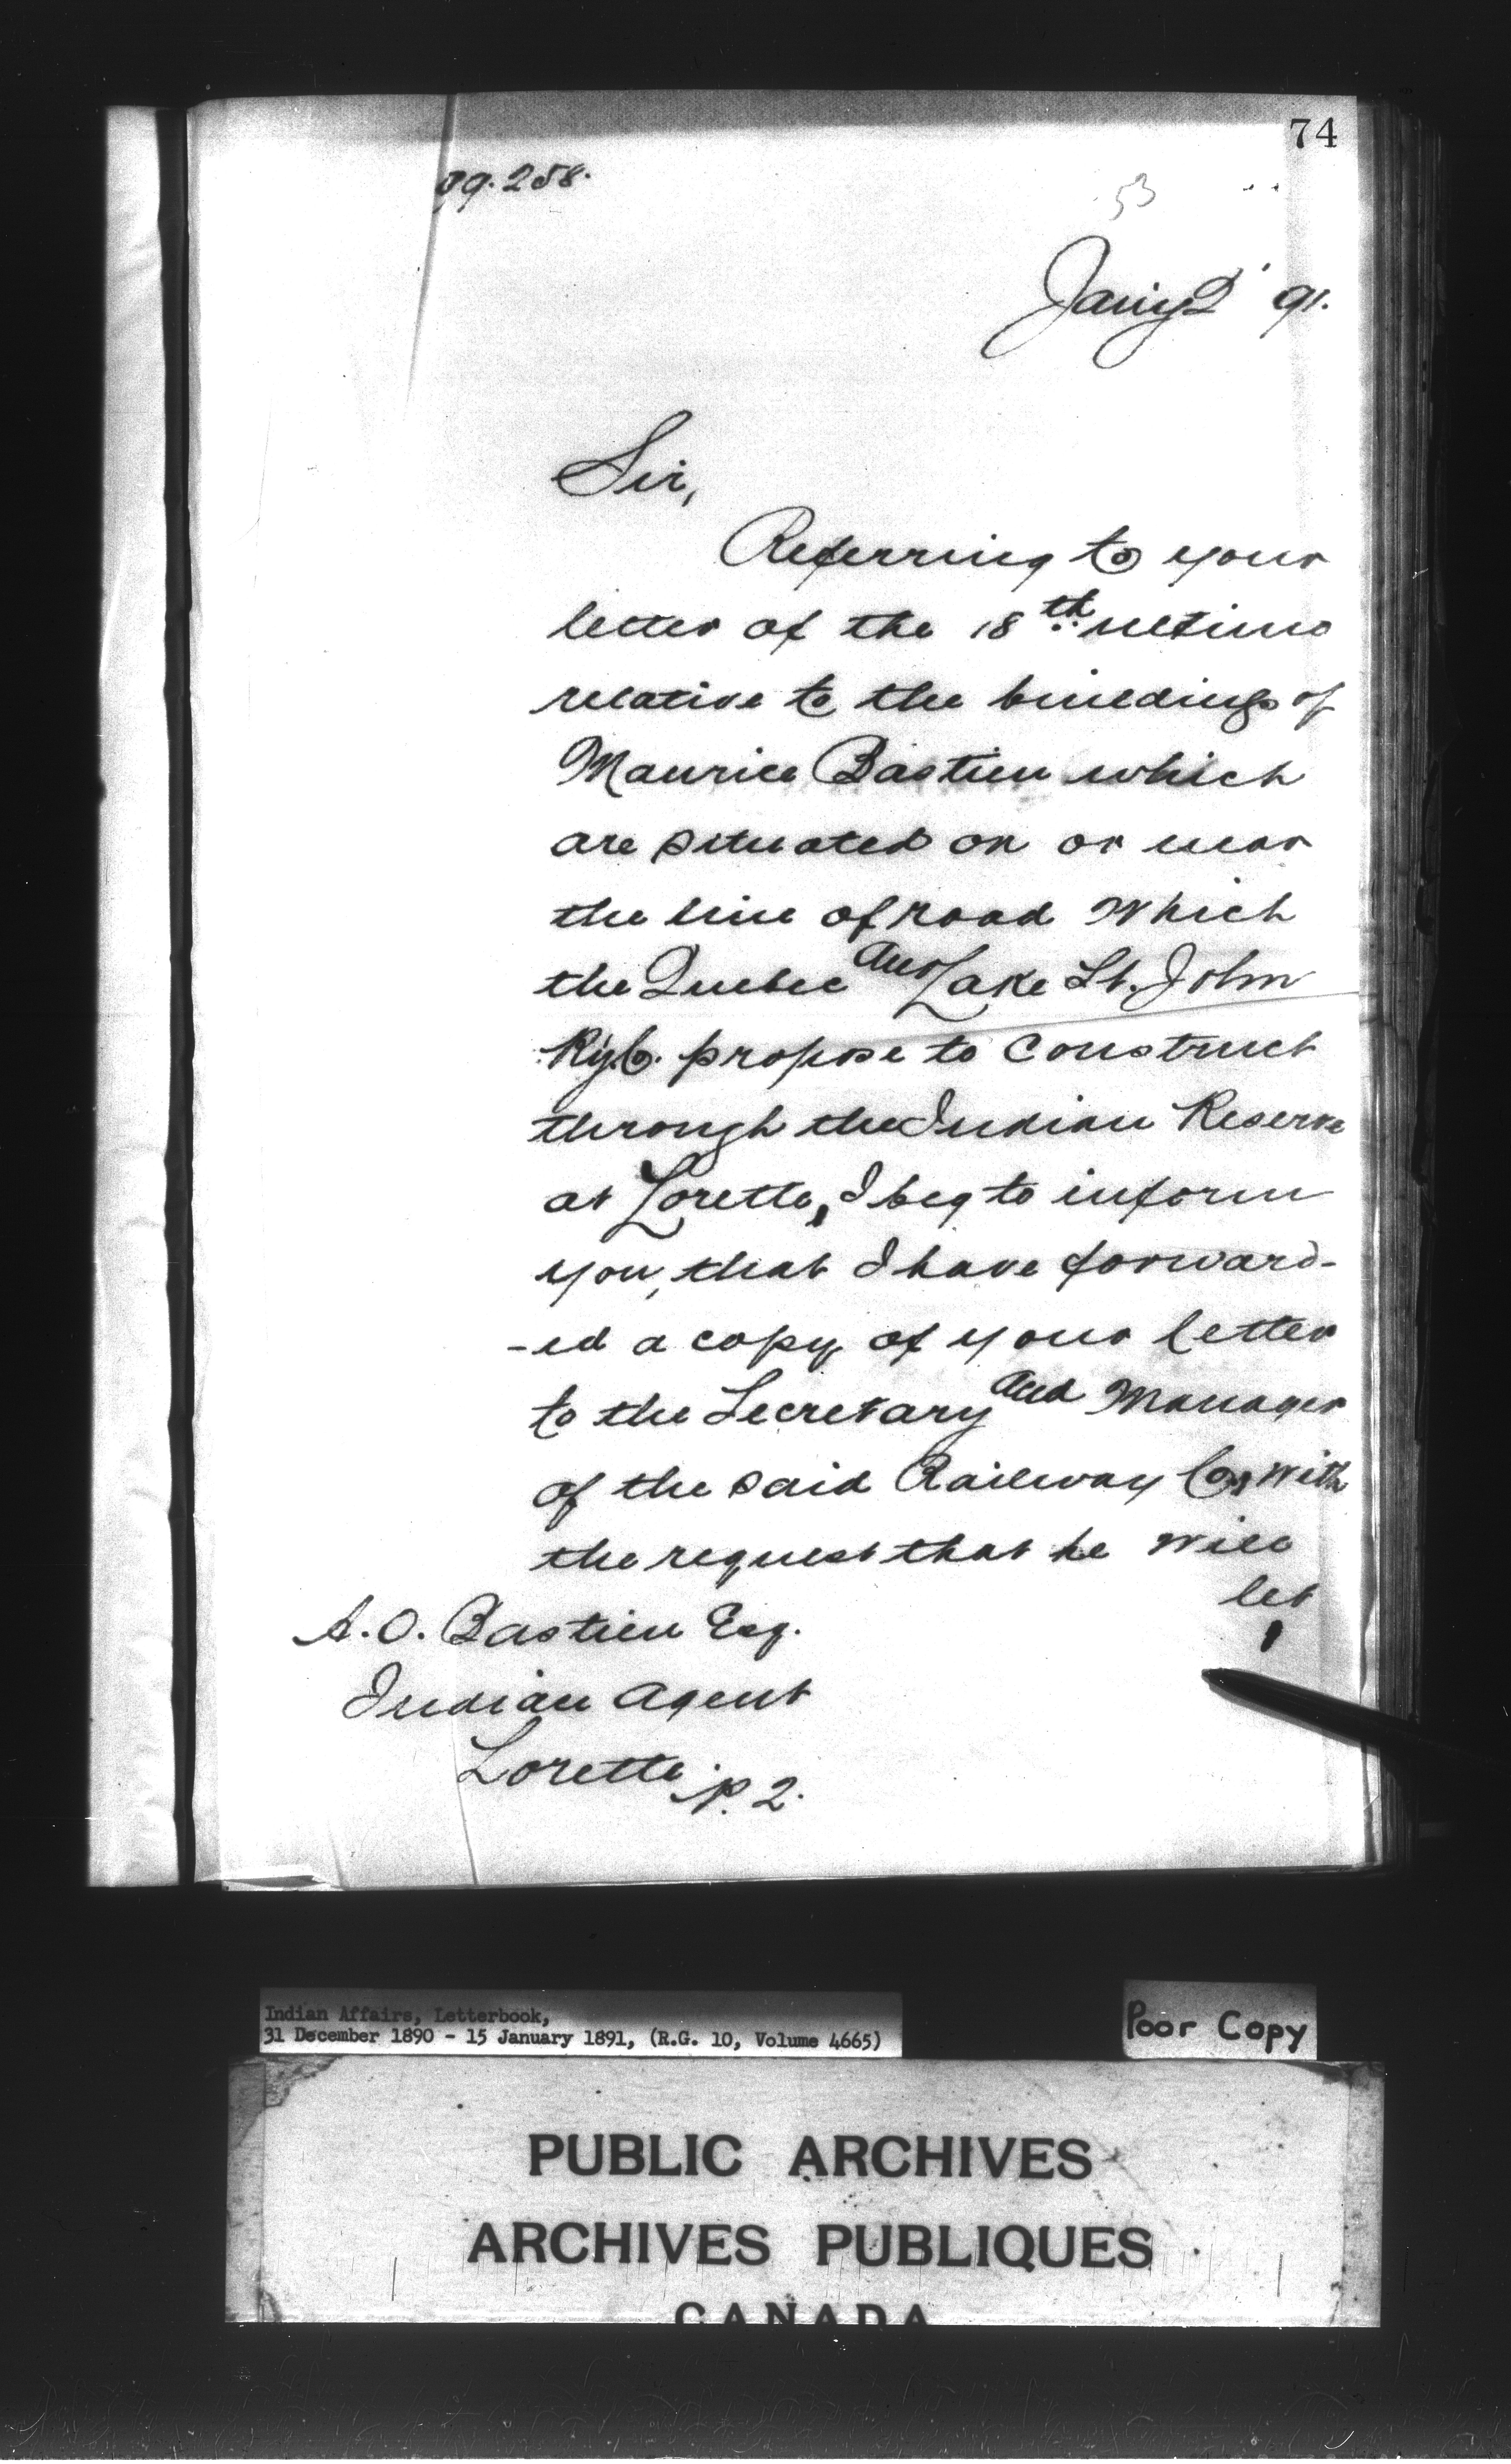 74
99.258.
53
Jan'y 2 '91.
Sir,
Referring to your
letter of the 18th ultimo
relative to the buildings of
Maurice Bastien which
are situated on or near
the line of road which
the Quebec and Lake St. John
Ry. Co. propose to construct
through the Indian Reserve
at Lorette, I beg to inform
you, that I have forward-
-ed a copy of your letter
to the Secretary and Manager
of the said Railway Co., with
the request that he will
let
A. O. Bastien Esq.
Indian Agent
Lorette P. Q.
Indian Affairs, Letterbook,
31 December 1890 - 15 January 1891, (R.G. 10, Volume 4665)
Poor Copy
PUBLIC ARCHIVES
ARCHIVES PUBLIQUES
CANADA